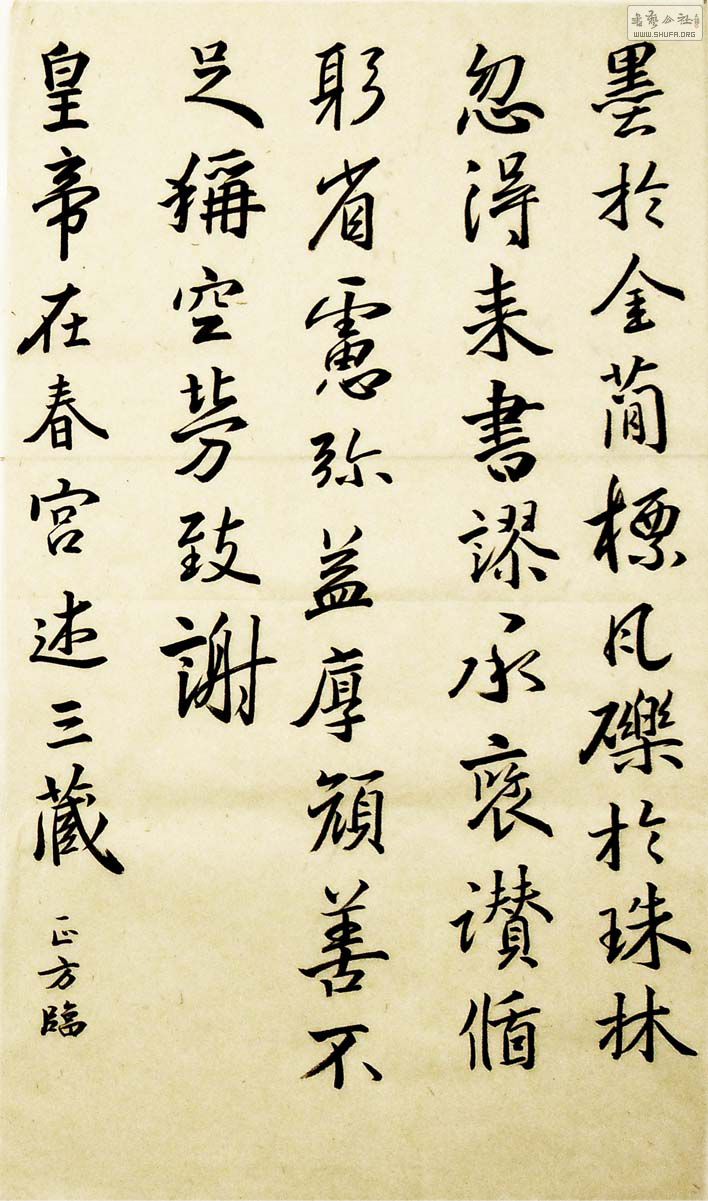 書藝公社
WWW.SHUFA.ORG
墨於金簡標瓦礫於珠林
忽得来書謬承褒讃循
躬省慮弥益厚顔善不
足稱空勞致謝
皇帝在春宮述三藏
正方臨